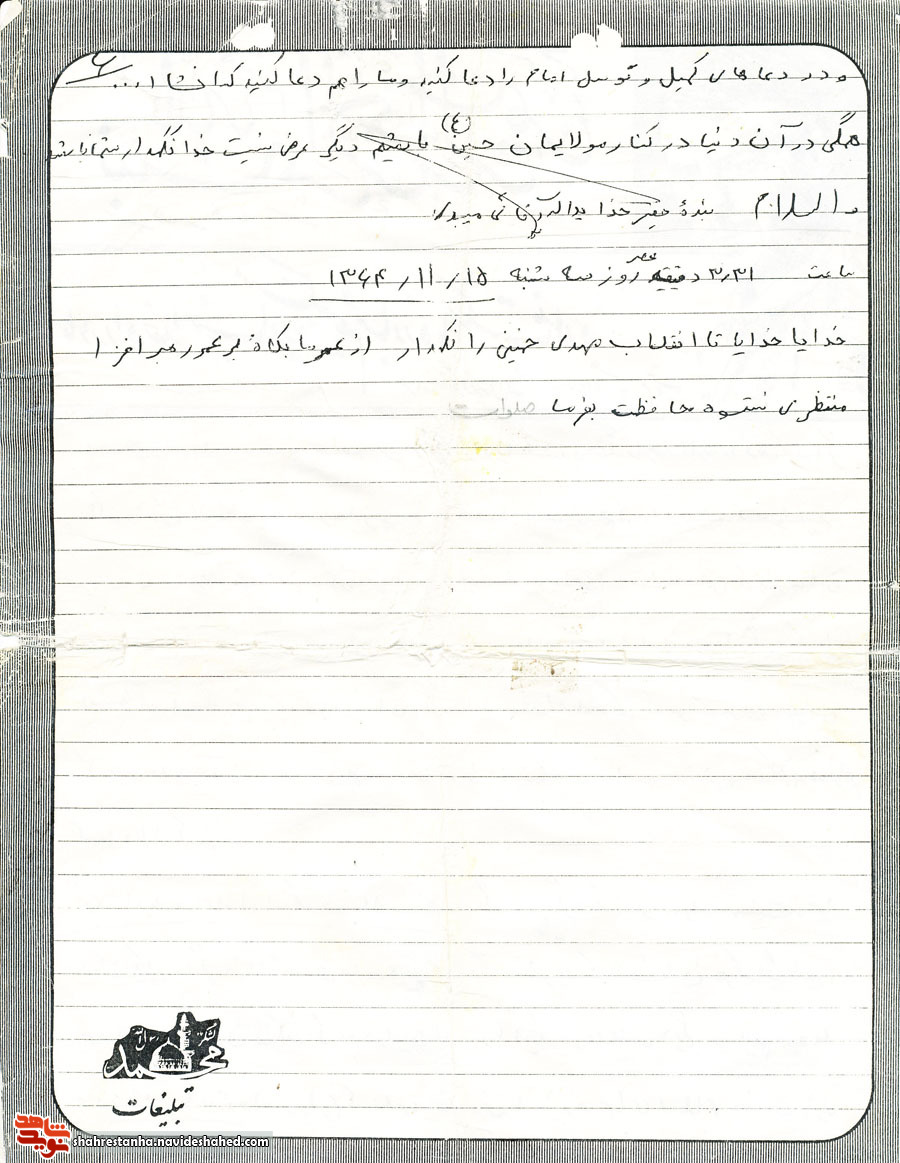 ۶
و در دعاهای کمیل و توسل امام را دعا کنید و ما را هم دعا کنید که انشا ا...
همگی در آن دنیا در کنار مولایمان حسین (ع) باشیم دیگر عرض نیست خدا نگهدار شما باشد
والسلام بنده حقیر خدا یداله میبدی
ساعت ۳٫۳۱ دقیقه عصر روز سه شنبه ۱۳۶۴/۱۱/۱۵
خدایا خدایا تا انقلاب مهدی خمینی را نگهدار از عمر ما بکاه بر عمر رهبر افزا
منتظری نستوه محافظت بفرما صلوات
لشکر محمد رسول الله
تبلیغات
شاهد
نوید
shahrestanha.navideshahed.com